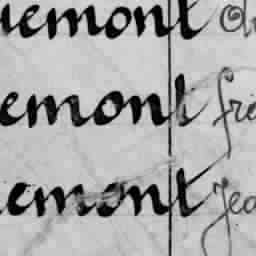 emont
emont fré
emont Jea